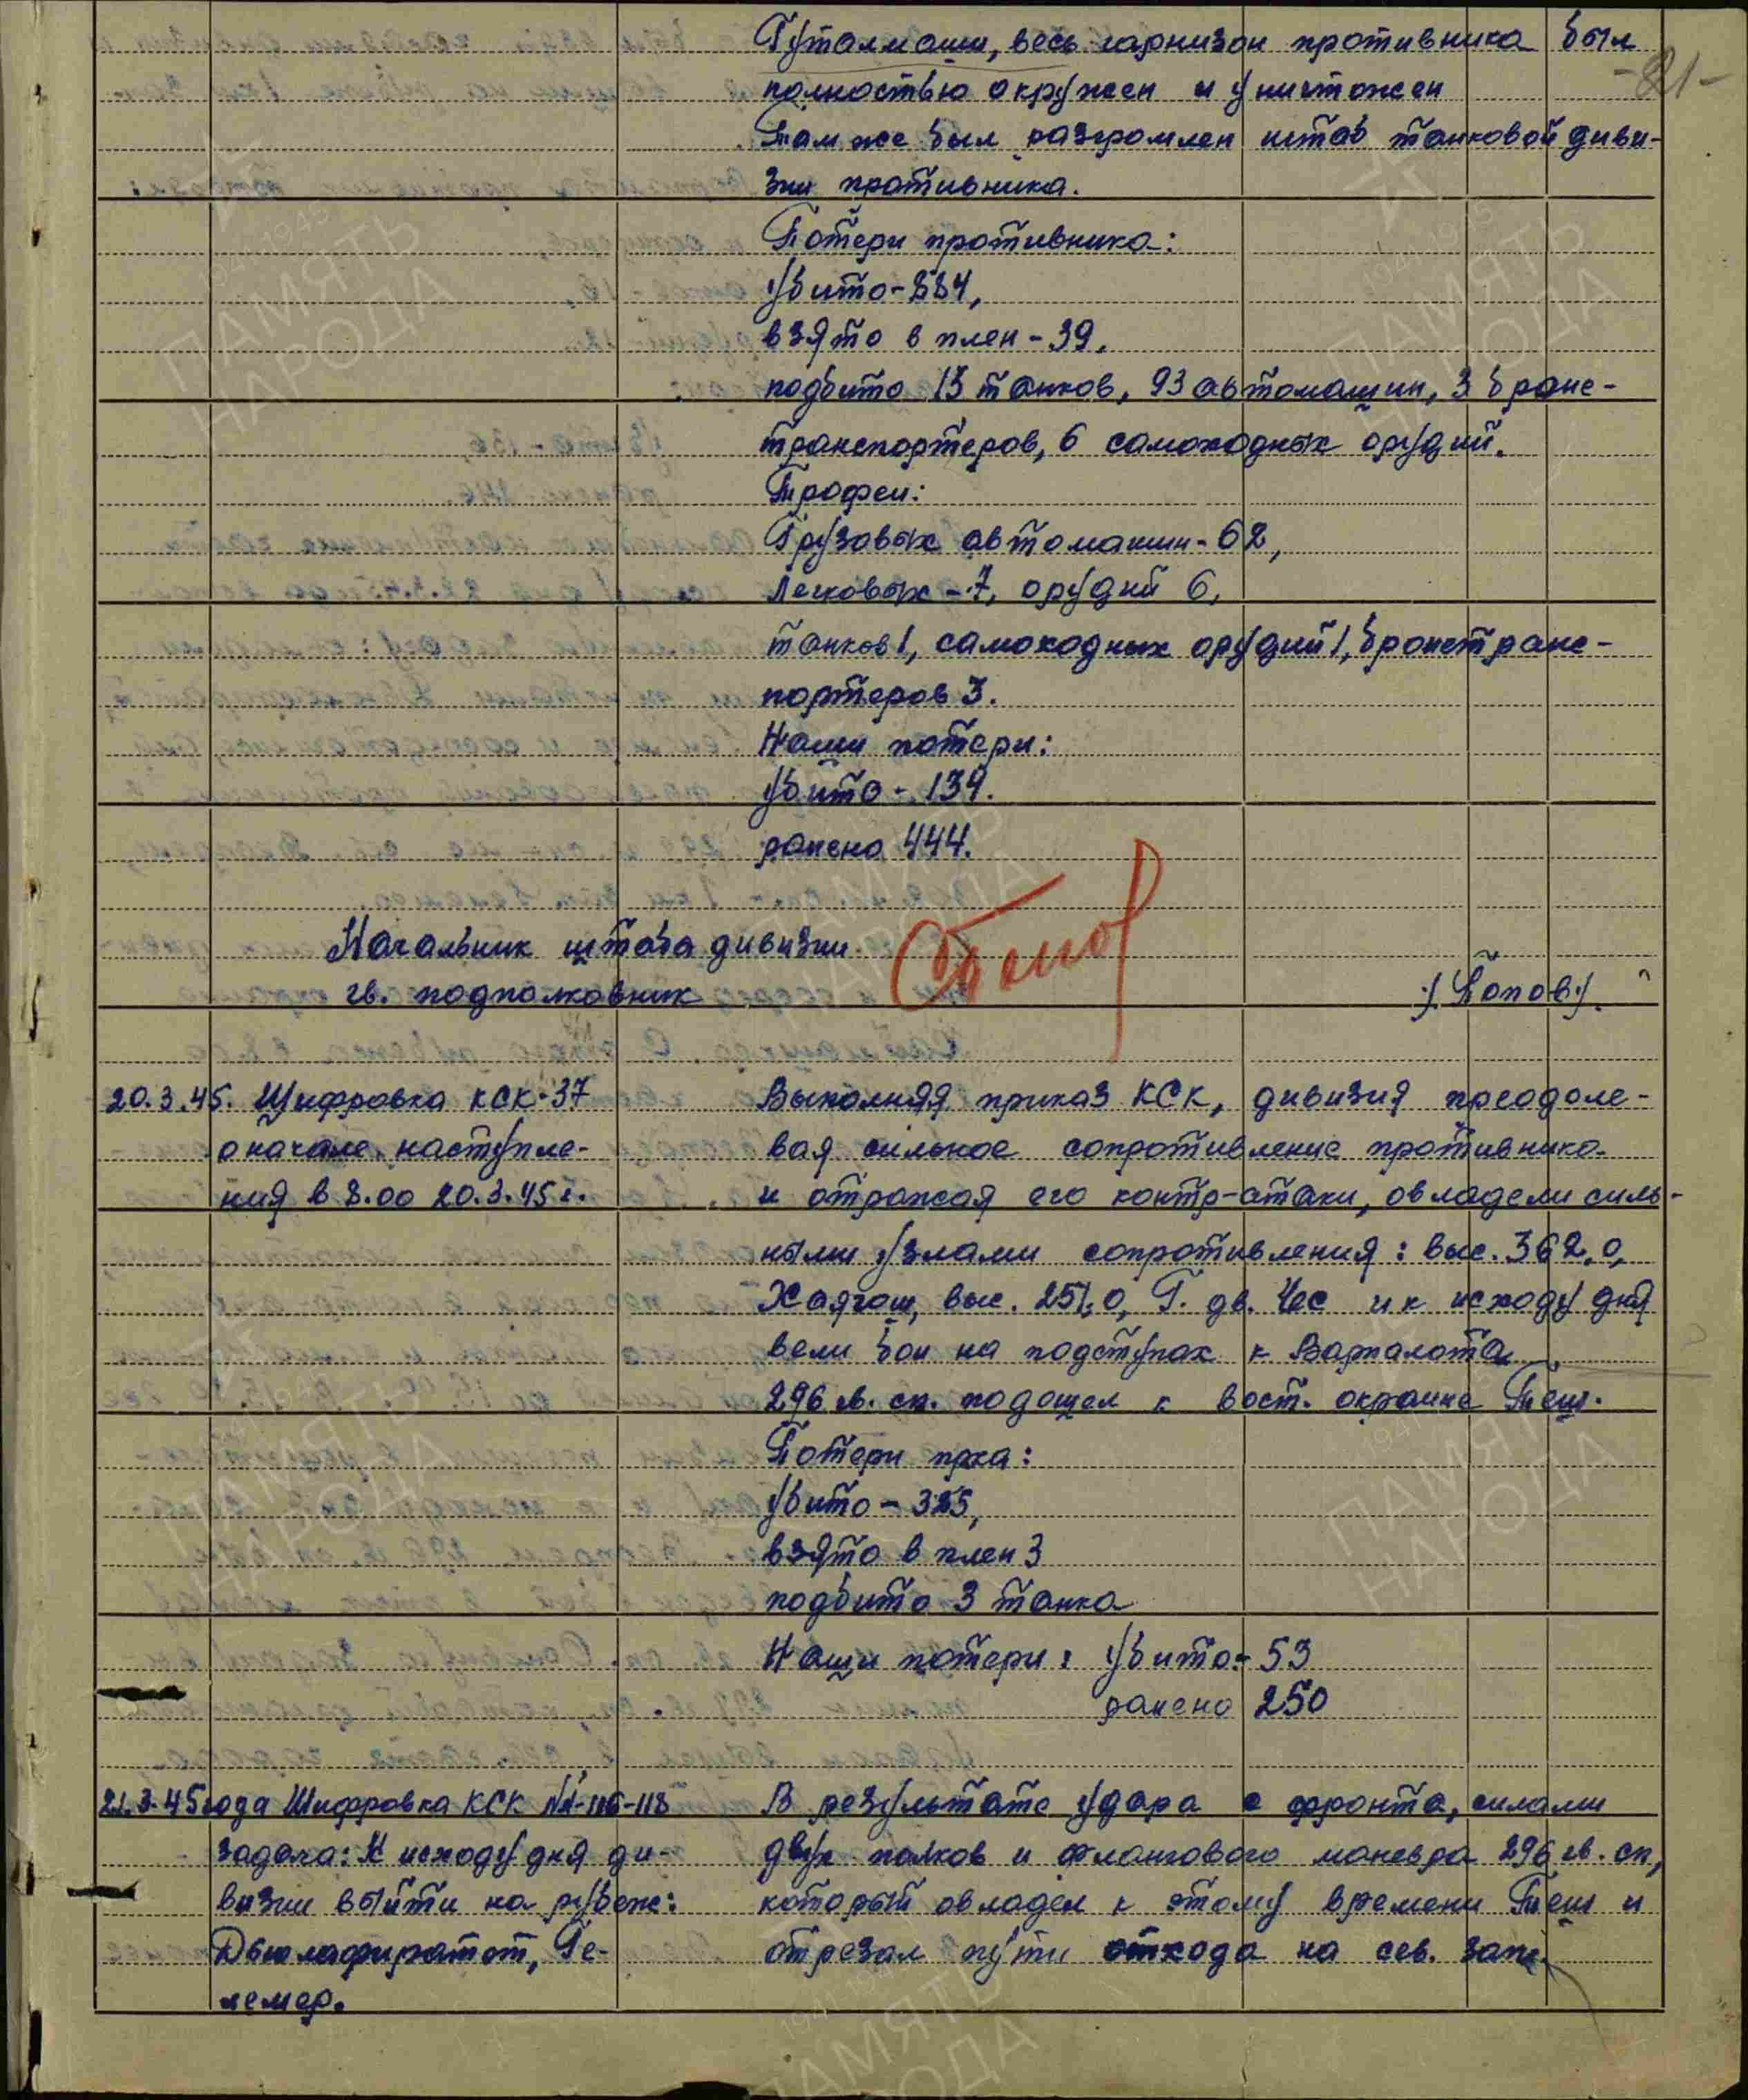 -81-
Гуталмаши, весь гарнизон противника был
полностью окружен и уничтожен
Там же был разгромлен штаб танковой диви-
зии противника.
Потери противника:
Убито-884,
взято в плен-39,
подбито 13 танков, 93 автомашин, 3 броне-
транспортеров, 6 самоходных орудий.
Трофеи:
Грузовых автомашин-62,
Легковых-7, орудий 6,
танков 1, самоходных орудий 1, бронетранс-
портеров 3.
Наши потери:
Убито-139.
ранено 444.
Начальник штаба дивизии
гв. подполковник
/Попов/.
20.3.45. Шифровка КСК-37
о начале наступле-
ния в 8.00 20.3.45 г.
Выполняя приказ КСК, дивизия преодоле-
вая сильное сопротивление противника
и отражая его контр-атаки, овладели силь-
ными узлами сопротивления: выс. 362,0,
Хаягош, выс. 251,0, Г. дв. Чес и к исходу дня
вели бои на подступах к Варпалота
296 гв. сп. подошел к вост. окраине Теш.
Потери пр-ка:
Убито-325,
взято в плен 3
подбито 3 танка
Наши потери: Убито-53
ранено 250
21.3.45 года Шифровка КСК №-116-118
Задача: К исходу дня ди-
визии выйти на рубеж:
Дьюлафиратот, Ге-
лемер.
В результате удара с фронта, силами
двух полков и флангового маневра 296 гв. сп,
который овладел к этому времени Теш и
отрезал пути отхода на сев. запад
ПАМЯТЬ
НАРОДА